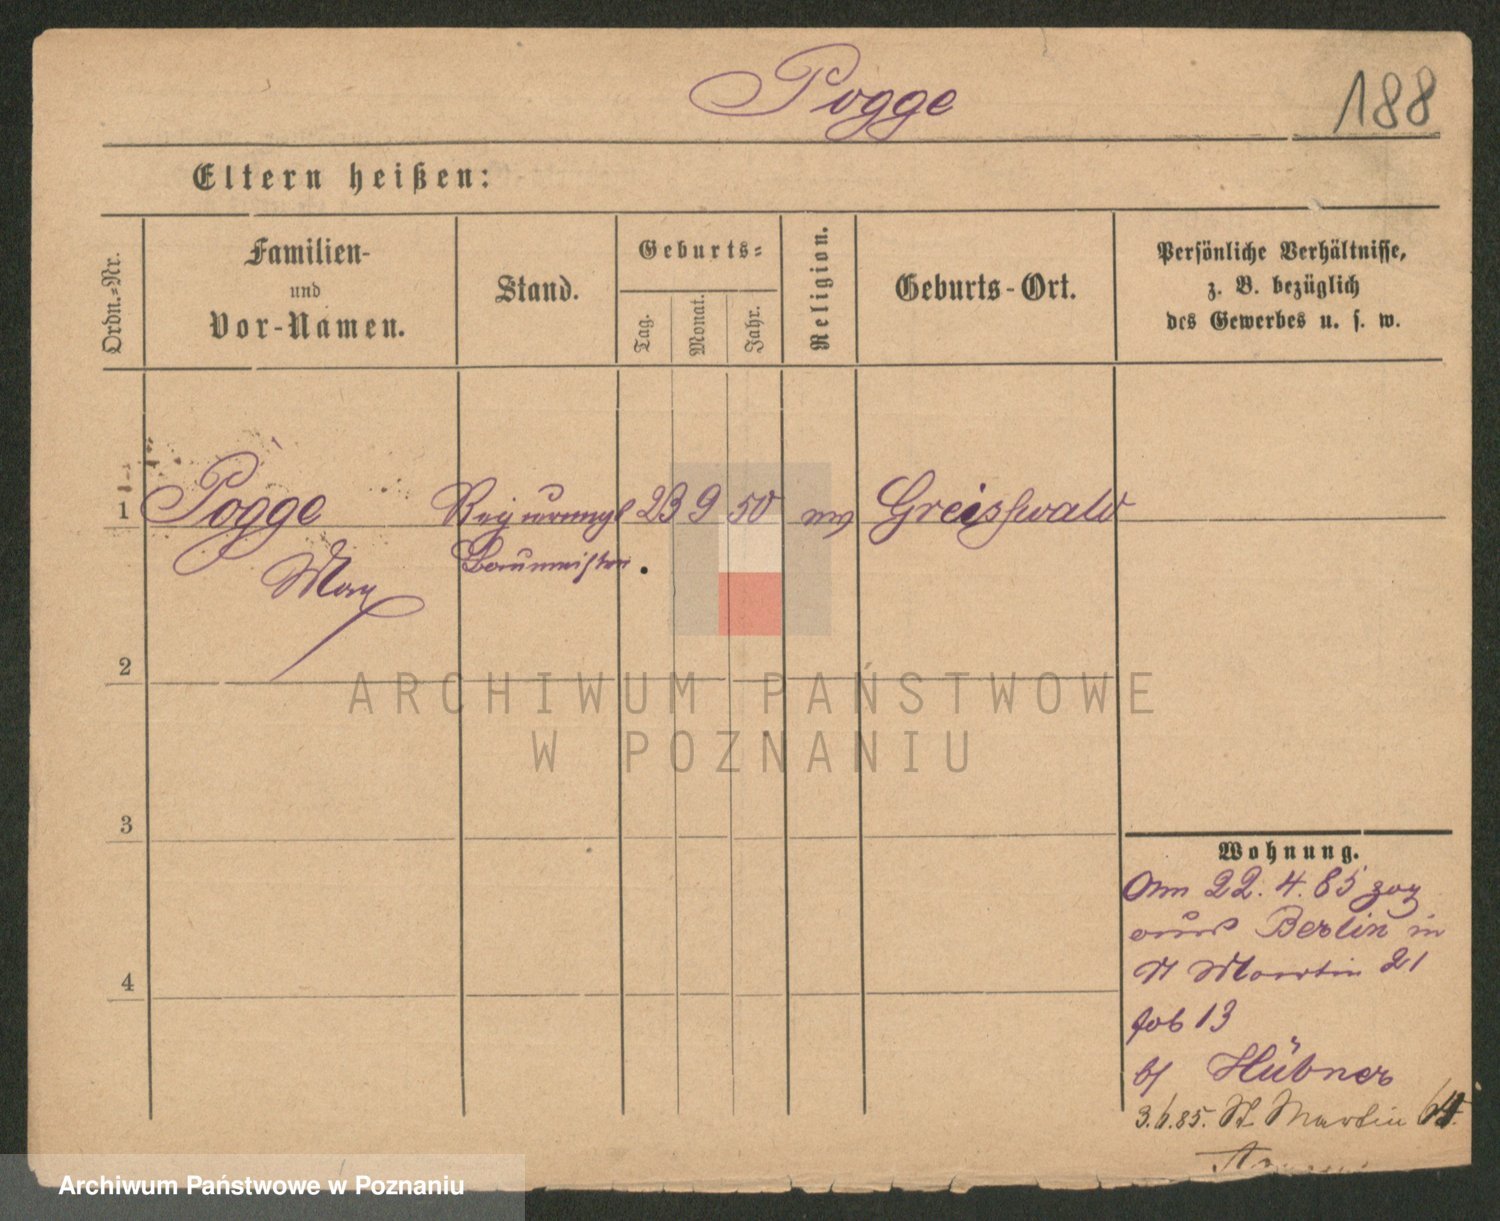 Pogge
188
Eltern heißen:
Ordn.-Nr.
Familien-
und
Vor-Namen.
Stand.
Geburts-
Tag.
Monat.
Jahr.
Religion.
Geburts-Ort.
Persönliche Verhältnisse,
z. B. bezüglich
des Gewerbes u. s. w.
1 Pogge 23 9 50 ev Greifswald
Max
Baumeister.
2
3
4
ARCHIWUM PAŃSTWOWE
W POZNANIU
Wohnung.
Am 22. 4. 85 zog
aus Berlin in
St Martin 21
13
b/ Hübner
3.6.85. St. Martin
Archiwum Państwowe w Poznaniu